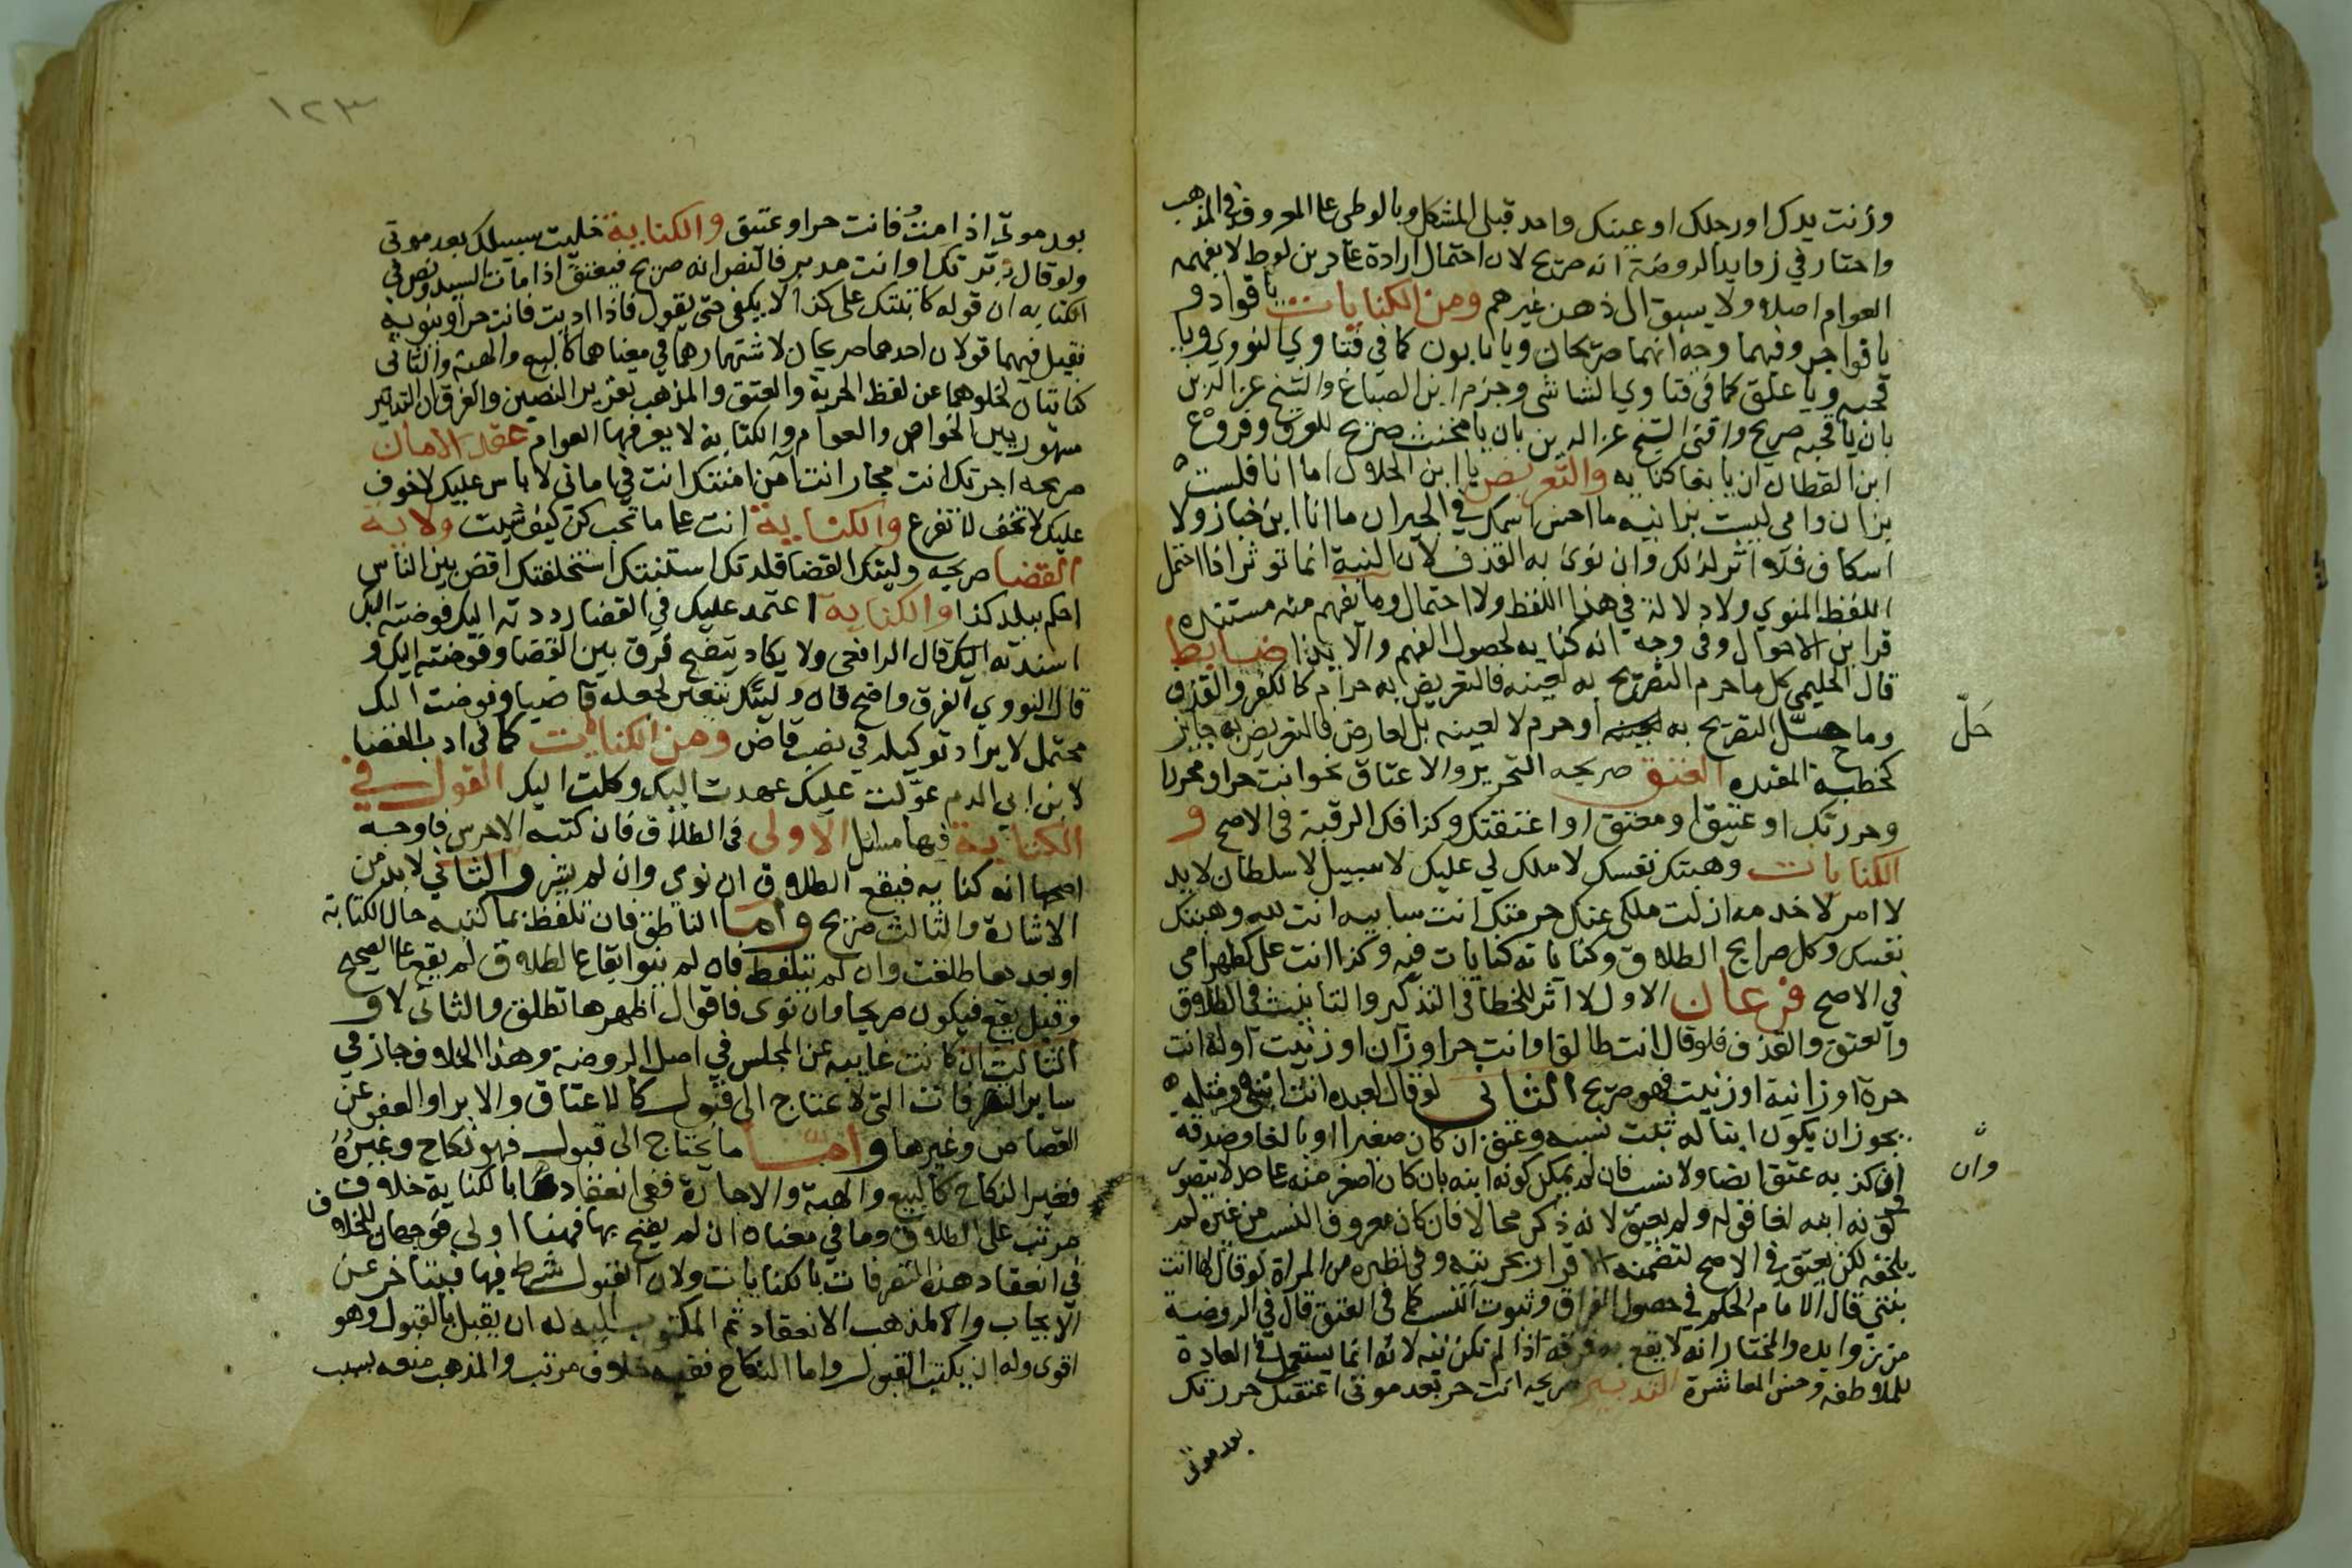 وزنت يدك او رجلك او عينك واحد قبلي المشكل وبالوطي على المعروف في المذهب
واختار في زوايد الروضة انه صريح لان احتمال ارادة على دين لوط لا يفهمه
العوام اصلا ولا يسبق الى ذهن غيرهم ومن الكنايات يا قواد و
يا فواجر وفيهما وجه انهما صريحان ويا مابون كما في فتاوي النووي ويا
قحبه ويا علق كما في فتاوي الشاشي وجزم ابن الصباغ والشيخ عز الدين
بان يا قحبه صريح وافتى الشيخ عز الدين بان يا مخنث صريح للعرف وفروع
ابن القطان ان يا بغا كنايه والتعريض يا ابن الحلال اما انا فلست
بزان وامي ليست بزانيه ما احسن اسمك في الجيران ما انا ابن خباز ولا
اسكاف فلا اثر لذلك وان نوى به القذف لان النية انما توثر اذا احتمل
اللفظ المنوي ولا دلالة في هذا اللفظ ولا احتمال وما يفهم منه مستنده
قراين الاحوال وفي وجه انه كنايه لحصول الفهم والايذا ضابط
قال الحليمي كل ما حرم التصريح به لعينه فالتعريض به حرام كالكفر والقذف
وما حل التصريح به او حرم لا لعينه بل لعارض فالتعريض به جايز
حلّ
كخطبة المعتده العتق صريحه التحرير والاعتاق نحو انت حر او محرر او
وحررتك او عتيق او معتق او اعتقتك وكذا فك الرقبة في الاصح و
الكنايات وهبتك نفسك لا ملك لي عليك لا سبيل لا سلطان لا يد
لا امر لا خدمه ازلت ملكي عنك حرمتك انت سايبه انت لله وهبتك
نفسك وكل صرايح الطلاق وكناياته كنايات فيه وكذا انت علي كظهر امي
في الاصح فرعان الاول لا اثر للخطا في التذكير والتانيث في الطلاق
والعتق والقذف فلو قال انت طالق او انت حر او زان او زنيت او له انت
حرة او زانية او زنيت فهو صريح الثاني لو قال لعبده انت ابني ومثله
يجوز ان يكون ابنا له ثبت نسبه وعتق ان كان صغيرا او بالغا وصدقه
وان
كذبه عتق ايضا ولا نسب فان لم يمكن كونه ابنه بان كان اصغر منه على حد لا يتصور
كونه ابنه لغا قوله ولم يعتق لانه ذكر محالا فان كان معروف النسب من غيره لم
يلحقه لكن يعتق في الاصح لتضمنه الاقرار بحريته وفي نظيره من المراة لو قال لها انت
بنتي قال الامام الحكم في حصول الفراق وثبوت النسب كما في العتق قال في الروضة
من زوايده والمختار انه لا يقع به فرقة اذا لم تكن نية لانه انما يستعمل في العادة
للملاطفة وحسن المعاشرة التدبير صريحه انت حر بعد موتي اعتقتك حررتك
بعد موتي
١٢٣
بعد موتي اذا مت فانت حر او عتيق والكناية خليت سبيلك بعد موتي
ولو قال دبرتك او انت مدبر فالنص انه صريح فيعتق اذا مات السيد ونص في
الكتابه ان قوله كاتبتك على كذا لا يكفي حتى يقول فاذا اديت فانت حر او ينويه
فقيل فيهما قولان احدهما صريحان لاشتهارهما في معناهما كالبيع والهبة والثاني
كنايتان لخلوهما عن لفظ الحرية والعتق والمذهب تقرير النصين والفرق ان التدبير
مشهور بين الخواص والعوام والكتابة لا يعرفها العوام عقد الامان
صريحه اجرتك انت مجار انت آمن امنتك انت في اماني لا باس عليك لا خوف
عليك لا تخف لا تفزع والكناية انت على ما تحب كن كيف شيت ولاية
القضا صريحه وليتك القضا قلدتك استنبتك استخلفتك اقض بين الناس
احكم ببلد كذا والكناية اعتمد عليك في القضا رددته اليك فوضته اليك
اسندته اليك قال الرافعي ولا يكاد يتضح فرق بين القضا وفوضته اليك و
قال النووي الفرق واضح فان وليتك يتعين لجعله قاضيا وفوضت اليك
محتمل لا يراد توكيله في نصب قاض ومن الكنايات كما في ادب القضا
لابن ابي الدم عولت عليك عهدت اليك وكلت اليك القول في
الكتابة فيها مسايل الاولى في الطلاق فان كتبه الاخرس فاوجه
اصحها انه كنايه فيقع الطلاق ان نوي وان لم يشر والثاني لا بد من
الاشارة والثالث صريح واما الناطق فان تلفظ بما كتبه حال الكتابة
او بعدها طلقت وان لم يتلفظ فان لم ينو ايقاع الطلاق لم يقع على الصحيح
وقيل يقع فيكون صريحا وان نوى فاقوال اظهرها تطلق والثاني لا و
الثالث ان كانت غايبه عن المجلس في اصل الروضة وهذا الخلاف جاز في
ساير التصرفات التي لا تحتاج الى قبول كالاعتاق والابرا والعفو عن
القصاص وغيرها واما ما يحتاج الى قبول فهو نكاح وغيره
فغير النكاح كالبيع والهبة والاجارة ففي انعقادها بالكناية خلاف
مرتب على الطلاق وما في معناه ان لم يصح بها فهنا اولى فوجهان للخلاف
في انعقاد هذه التصرفات بالكنايات ولان القبول شرط فيها فيتاخر عن
الايجاب والمذهب الانعقاد ثم المكتوب اليه له ان يقبل بالقول وهو
اقوى وله ان يكتب القبول واما النكاح ففيه خلاف مرتب والمذهب منعه بسبب